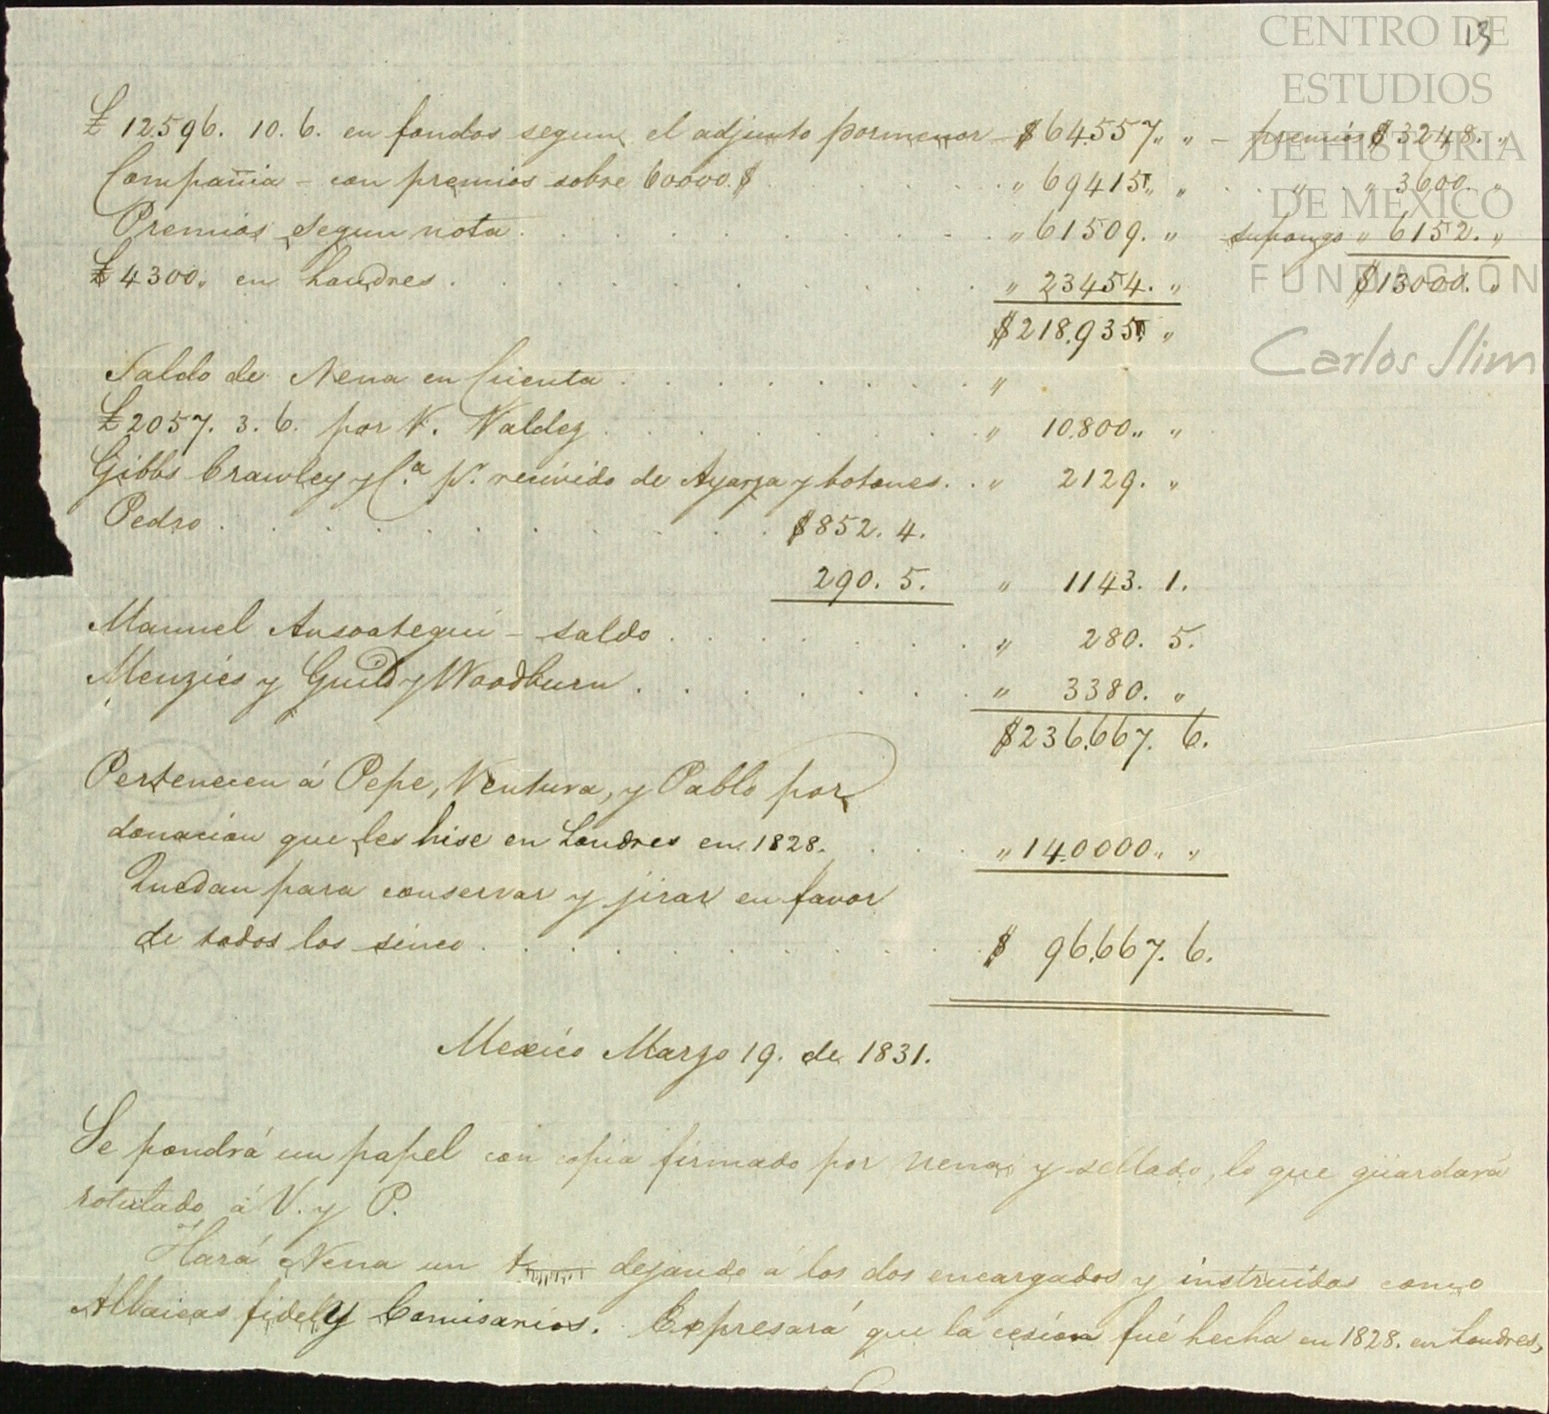 CENTRO DE
ESTUDIOS
DE HISTORIA
DE MEXICO
FUNDACIÓN
Carlos Slim
13
£ 12.596. 10. 6. en fondos segun el adjunto pormenor - $ 64.557,, ,, - premios $ 3248. ,,
Compañia - con premios sobre 60000.$ . . . . . ,, 69415,, ,, . . ,, ,, 3600. ,,
Premios segun nota . . . . . . . . . . ,, 61509. ,, supongo ,, 6152. ,,
£ 4300,, en Londres . . . . . . . . . . ,, 23454. ,, $13000. ,,
$218,935. ,,
Saldo de Nena en Cuenta . . . . . . . . ,,
£ 2057. 3. 6. por V. Valdez . . . . . . . . ,, 10.800,, ,,
Gibbs Crawley y C.a p.r recivido de Ayarza y botones . . ,, 2129. ,,
Pedro . . . . . . . . . $852. 4.
290. 5. ,, 1143. 1.
Manuel Ansoategui - saldo . . . . . . . ,, 280. 5.
Menzies y Guild y Woodburn . . . . . . . ,, 3380. ,,
$236,667. 6.
Pertenecen á Pepe, Ventura, y Pablo por
donacion que les hise en Londres en 1828. . . . ,, 140000,, ,,
Quedan para conservar y jirar en favor
de todos los sinco . . . . . . . . . $ 96,667. 6.
Mexico Marzo 19. de 1831.
Se pondrá un papel con copia firmado por Nena y sellado, lo que guardará
rotulado á V. y P.
Hará Nena un dejando á los dos encargados y instruidos como
Albaceas fidely Comisarios. Expresará que la cesion fué hecha en 1828. en Londres,